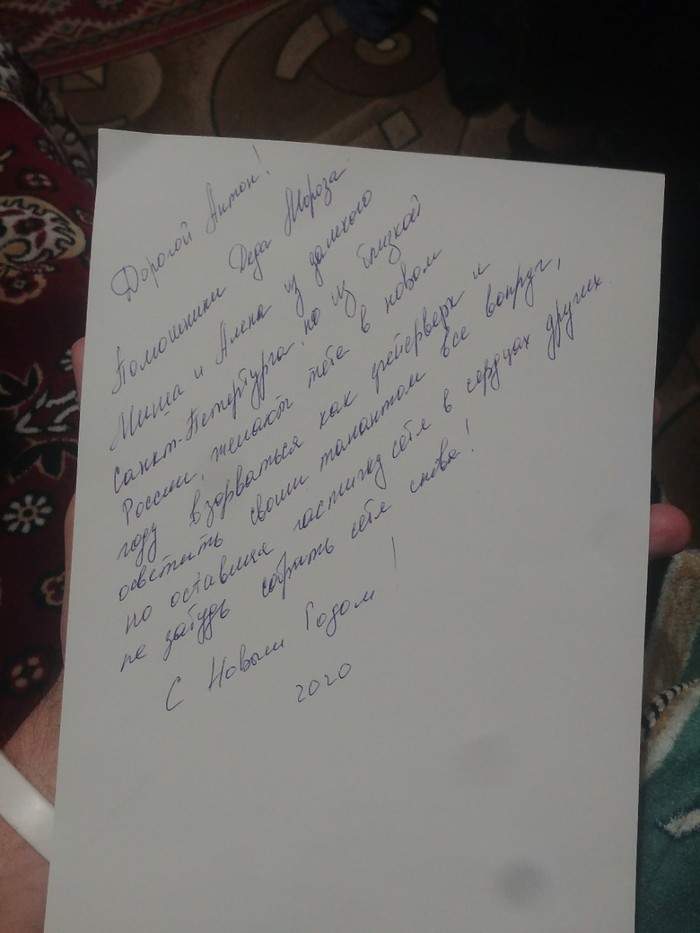 Дорогой Антон!
Помошники Деда Мороза
Миша и Алена из далекого
Санкт-Петербурга, но из близкой
России, желают тебе в новом
году взорваться как фейерверк и
осветить своим талантом все вокруг,
но оставив частичку себя в сердцах других
не забудь собрать себя снова!
С Новым Годом!
2020